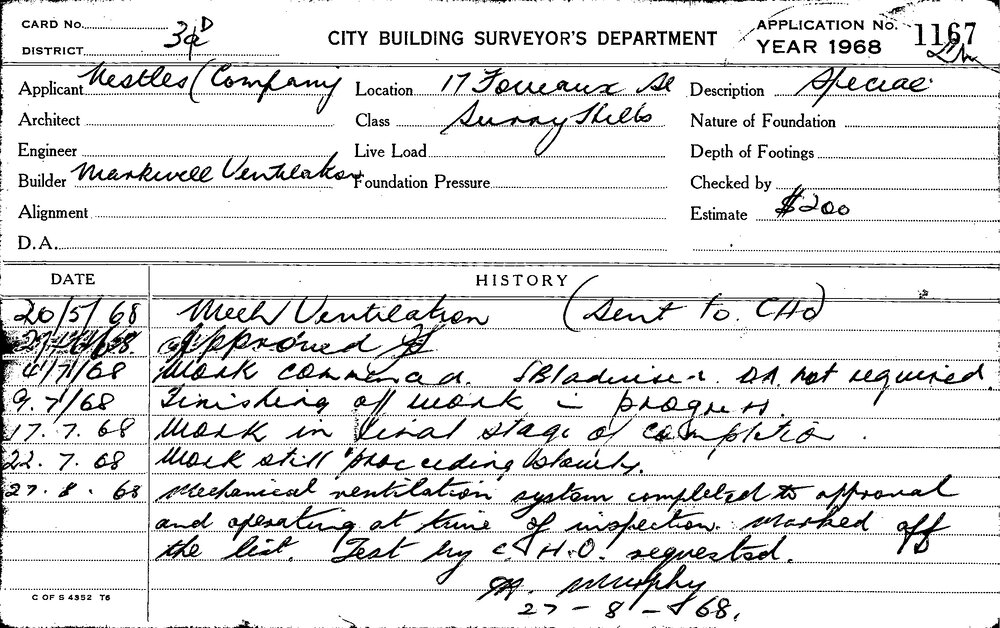 CARD No. 3 D
DISTRICT
CITY BUILDING SURVEYOR'S DEPARTMENT
APPLICATION No. 1167
YEAR 1968
Applicant Nestles Company Location 17 Foveaux St Description Special
Architect Class Surry Hills Nature of Foundation
Engineer Live Load Depth of Footings
Builder Markwell Ventilation Foundation Pressure Checked by
Alignment Estimate $200
D.A.
DATE HISTORY
20/5/68 Mech Ventilation (Sent to CHO)
68. Approved
4/7/68 Work commenced. DA not required.
9.7/68 Finishing off work in progress.
17.7.68 Work in final stage of completion.
22.7.68 Work still proceeding slowly.
27.8.68 Mechanical ventilation system completed to approval
and operating at time of inspection. Marked off
the list. Test by C.H.O. requested.
Murphy
27-8-68.
C OF S 4352 T6